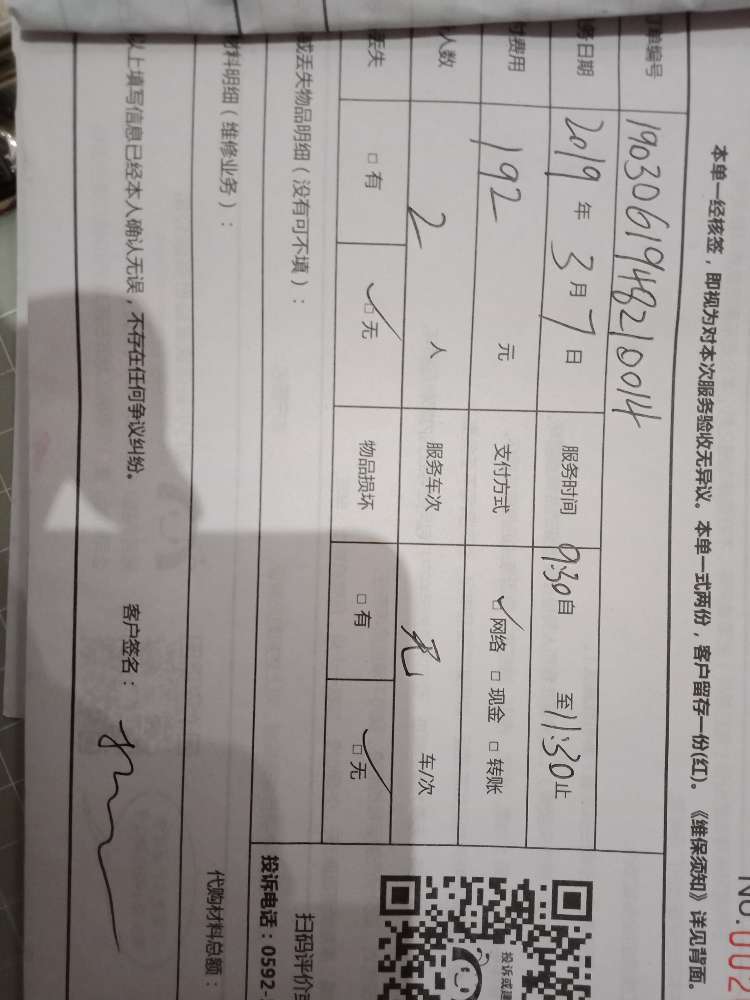 NO.002
本单一经核签，即视为对本次服务验收无异议。本单一式两份，客户留存一份(红)。《维保须知》详见背面。
单编号 1903061948210014
务日期 2019 年 3 月 7 日 服务时间 9:30 自 至 11:30 止
付费用 192 元 支付方式 ✓□ 网络 □ 现金 □ 转账
人数 2 人 服务车次 无 车/次
丢失 □ 有 ✓□ 无 物品损坏 □ 有 ✓□ 无
或丢失物品明细（没有可不填）：
材料明细（维修业务）：
代购材料总额：
以上填写信息已经本人确认无误，不存在任何争议纠纷。 客户签名：
投诉或建
扫码评价或
投诉电话：0592-